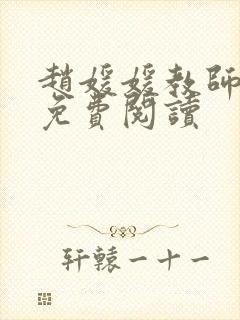 趙媛媛教師
免費閱讀
轩辕一十一